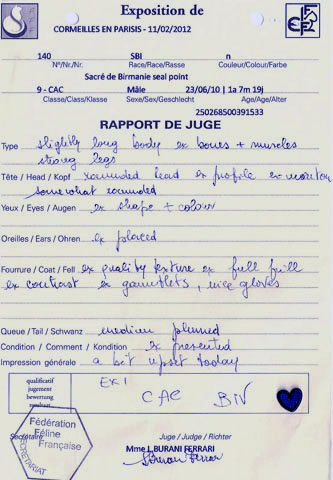 Exposition de
CORMEILLES EN PARISIS - 11/02/2012
140 SBI n
N°/Nr./Nr. Race/Race/Rasse Couleur/Colour/Farbe
Sacré de Birmanie seal point
9 - CAC Mâle 23/06/10 | 1a 7m 19j
Classe/Class/Klasse Sexe/Sex/Geschlecht Age/Age/Alter
250268500391533
RAPPORT DE JUGE
Type slightly long body ex bones + muscles
strong legs
Tête / Head / Kopf rounded head ex profile ex
somewhat rounded
Yeux / Eyes / Augen ex shape + colour
Oreilles / Ears / Ohren ex placed
Fourrure / Coat / Fell ex quality texture ex full frill
ex contrast ex gauntlets, nice gloves
Queue / Tail / Schwanz medium plumed
Condition / Comment / Kondition ex presented
Impression générale a bit upset today
qualificatif
jugement
bewertung
EX 1
CAC BIV
Fédération
Féline
Française
SECRÉTARIAT
Secrétaire
Juge / Judge / Richter
Mme L.BURANI FERRARI